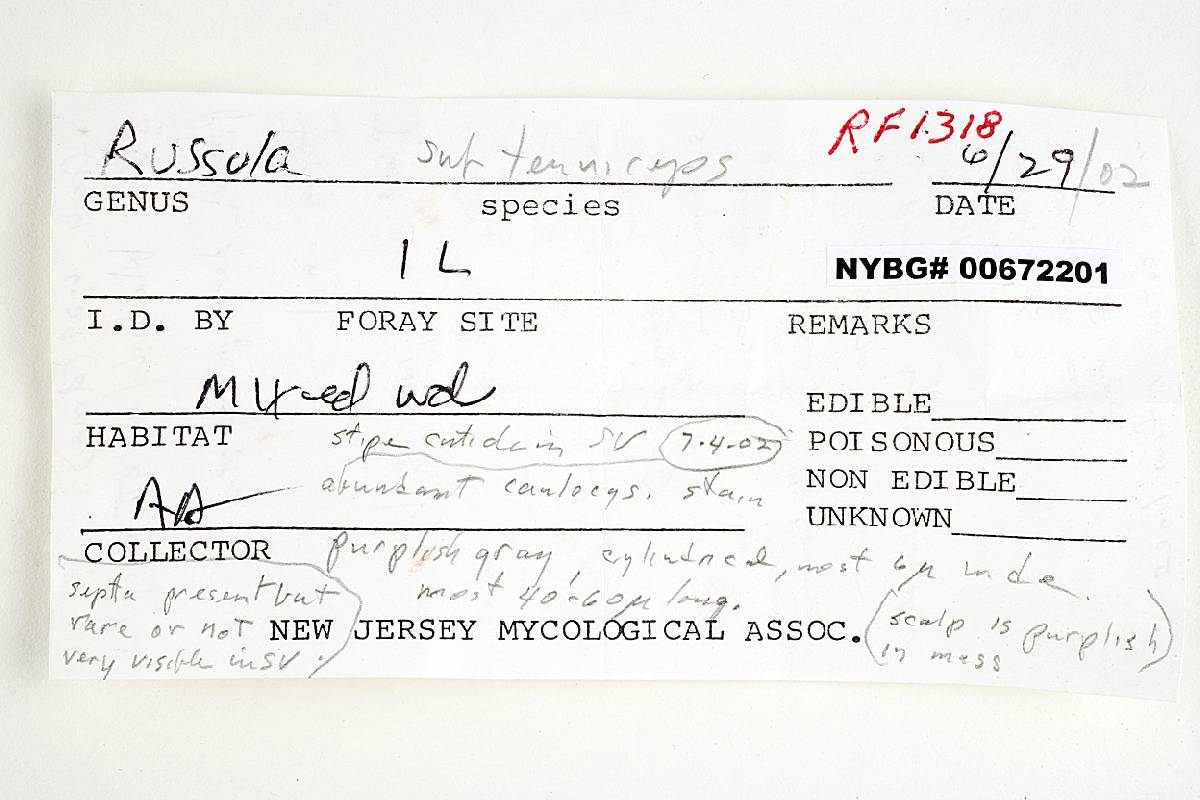 RF1318
Russula subtenuiceps 6/29/02
GENUS species DATE
IL NYBG# 00672201
I.D. BY FORAY SITE REMARKS
Mixed wd
EDIBLE
HABITAT stipe cuticle in SV 7-4-02 POISONOUS
AA abundant caulocys. stain NON EDIBLE
UNKNOWN
COLLECTOR purplish gray, cylindrical, most 6µ wide
septa present but most 40-60µ long.
rare or not NEW JERSEY MYCOLOGICAL ASSOC. (scalp is purplish
very visible in SV. in mass)